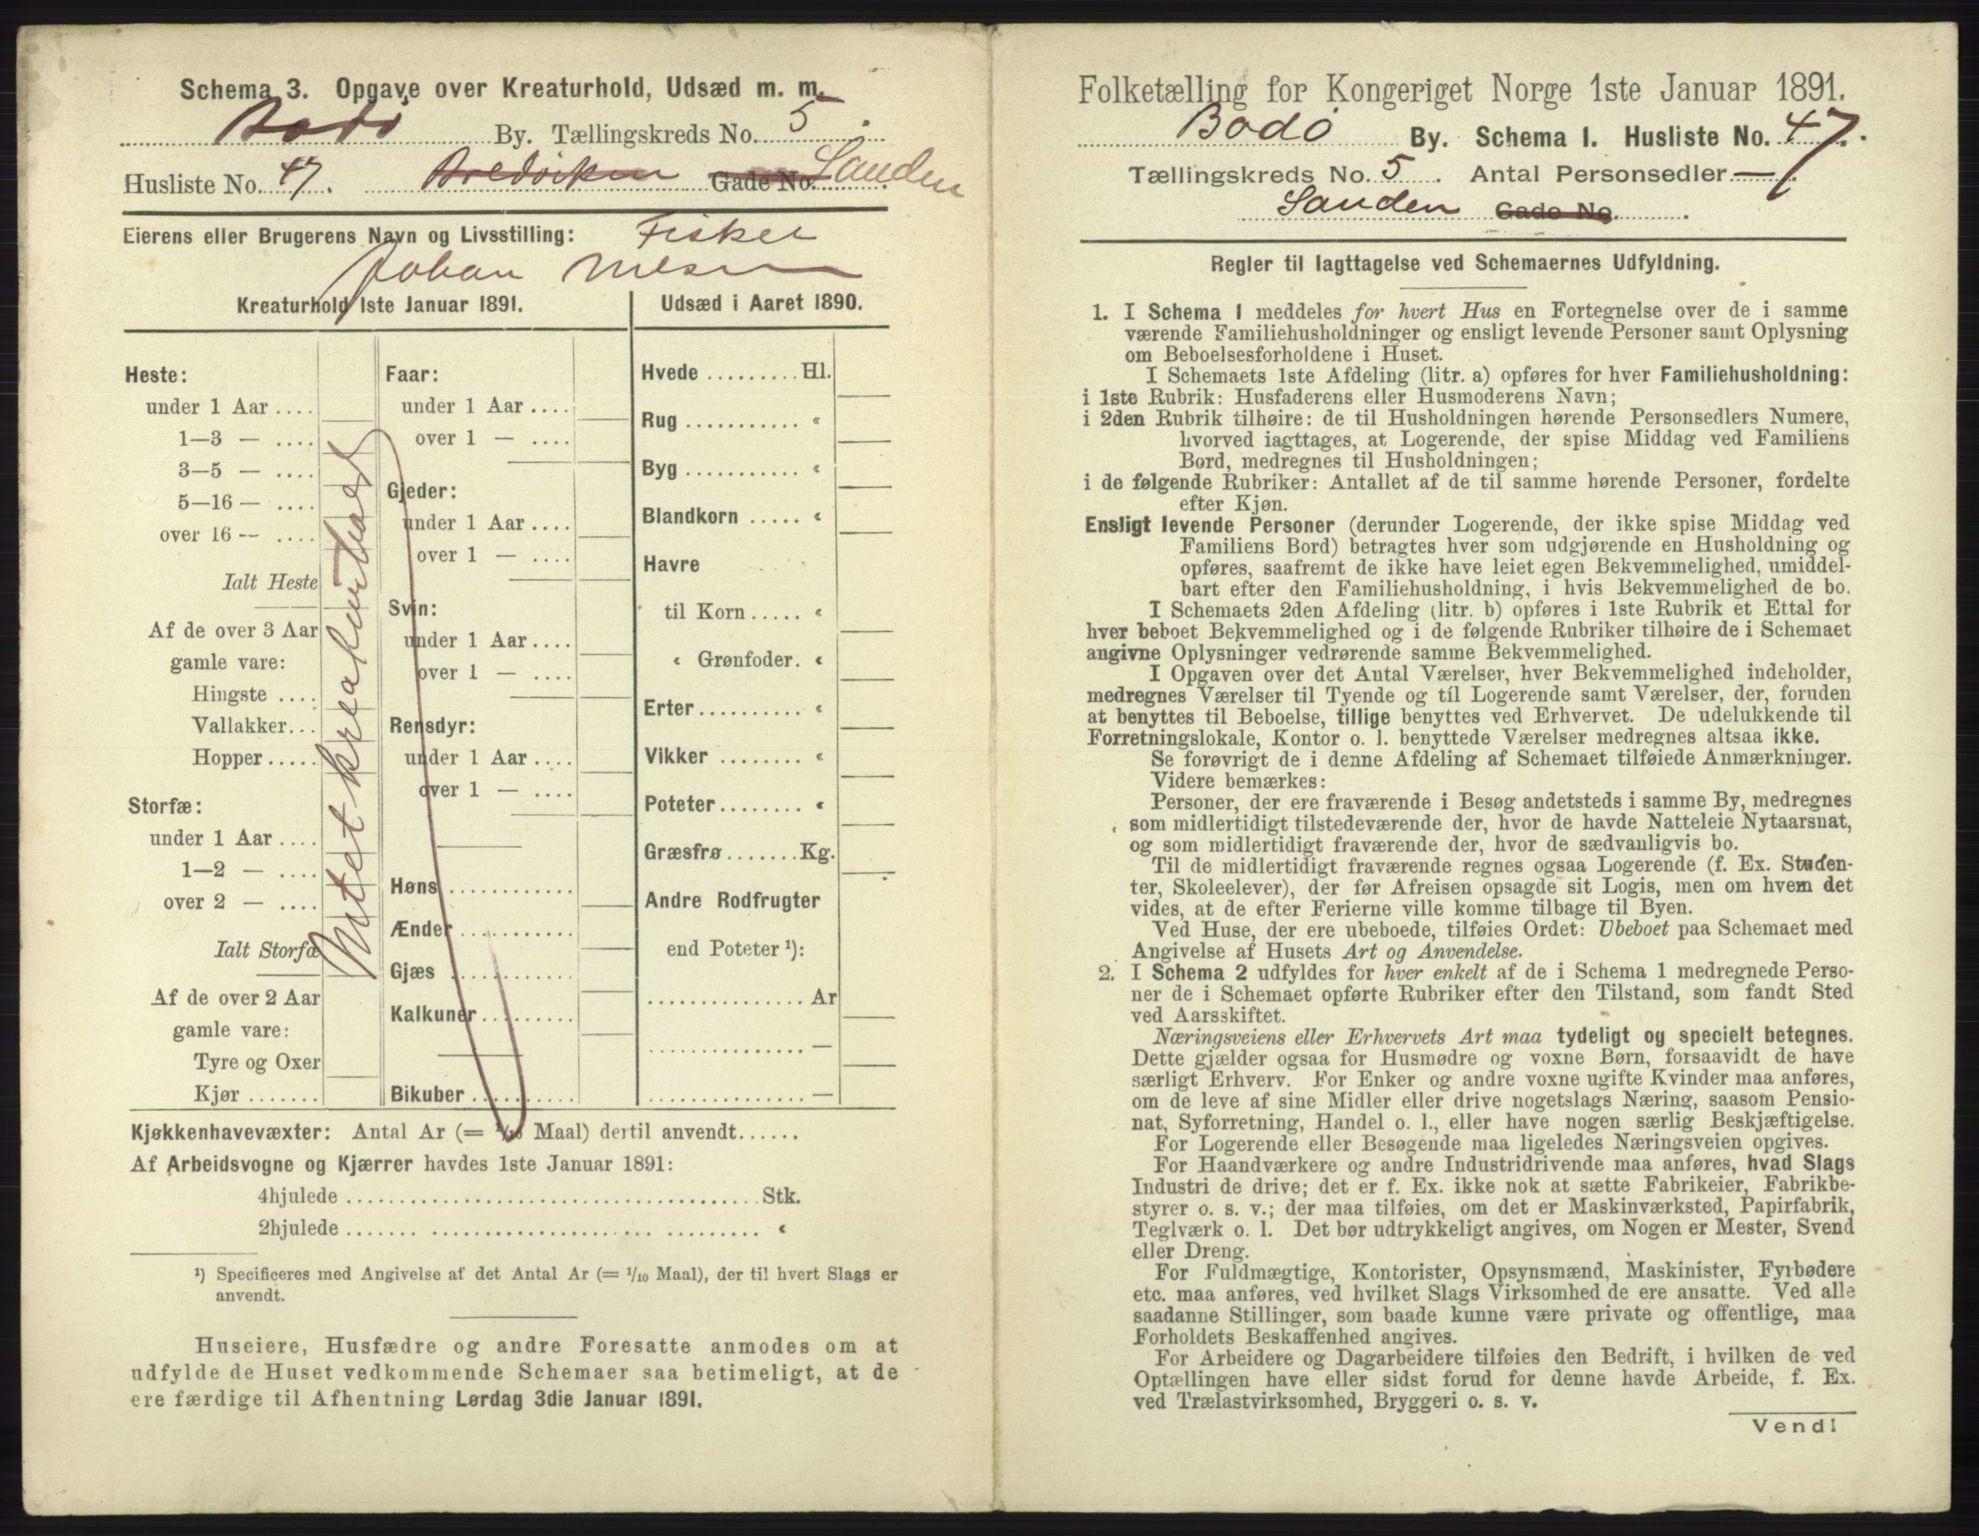 Schema 3. Opgave over Kreaturhold, Udsæd m. m.
Bodø By. Tællingskreds No. 5.
Husliste No. 47. Bredviken Gade No. Sanden
Eierens eller Brugerens Navn og Livsstilling: Fisker
Johan Nilsen
Kreaturhold 1ste Januar 1891.
Heste:
under 1 Aar ....
1—3 — ....
3—5 — ....
5-16 — ....
over 16 — ....
Ialt Heste
Af de over 3 Aar
gamle vare:
Hingste ....
Vallakker...
Hopper.....
Storfæ:
under 1 Aar ....
1—2 — ....
over 2 — ....
Ialt Storfæ
Af de over 2 Aar
gamle vare:
Tyre og Oxer
Kjør .......
Intet kreaturhold
Faar:
under 1 Aar ....
over 1 — ....
Gjeder:
under 1 Aar ....
over 1 — ....
Svin:
under 1 Aar ....
over 1 — ....
Rensdyr:
under 1 Aar ....
over 1 — ....
Høns
Ænder
Gjæs
Kalkuner
Bikuber
Udsæd i Aaret 1890.
Hvede ......... Hl.
Rug ........... «
Byg ........... «
Blandkorn ..... «
Havre
til Korn ..... «
« Grønfoder. «
Erter ......... «
Vikker ........ «
Poteter ........ «
Græsfrø ....... Kg.
Andre Rodfrugter
end Poteter ¹):
............... Ar
............... —
............... —
Kjøkkenhavevæxter: Antal Ar (= 1/10 Maal) dertil anvendt......
Af Arbeidsvogne og Kjærrer havdes 1ste Januar 1891:
4hjulede ........ Stk.
2hjulede ........ «
¹) Specificeres med Angivelse af det Antal Ar (= 1/10 Maal), der til hvert Slags er
anvendt.
Huseiere, Husfædre og andre Foresatte anmodes om at
udfylde de Huset vedkommende Schemaer saa betimeligt, at de
ere færdige til Afhentning Lørdag 3die Januar 1891.
Folketælling for Kongeriget Norge 1ste Januar 1891.
Bodø By. Schema 1. Husliste No. 47.
Tællingskreds No. 5. Antal Personsedler 7.
Sanden Gade No.
Regler til Iagttagelse ved Schemaernes Udfyldning.
1. I Schema 1 meddeles for hvert Hus en Fortegnelse over de i samme
værende Familiehusholdninger og ensligt levende Personer samt Oplysning
om Beboelsesforholdene i Huset.
I Schemaets 1ste Afdeling (litr. a) opføres for hver Familiehusholdning:
i 1ste Rubrik: Husfaderens eller Husmoderens Navn;
i 2den Rubrik tilhøire: de til Husholdningen hørende Personsedlers Numere,
hvorved iagttages, at Logerende, der spise Middag ved Familiens
Bord, medregnes til Husholdningen;
i de følgende Rubriker: Antallet af de til samme hørende Personer, fordelte
efter Kjøn.
Ensligt levende Personer (derunder Logerende, der ikke spise Middag ved
Familiens Bord) betragtes hver som udgjørende en Husholdning og
opføres, saafremt de ikke have leiet egen Bekvemmelighed, umiddel-
bart efter den Familiehusholdning, i hvis Bekvemmelighed de bo.
I Schemaets 2den Afdeling (litr. b) opføres i 1ste Rubrik et Ettal for
hver beboet Bekvemmelighed og i de følgende Rubriker tilhøire de i Schemaet
angivne Oplysninger vedrørende samme Bekvemmelighed.
I Opgaven over det Antal Værelser, hver Bekvemmelighed indeholder,
medregnes Værelser til Tyende og til Logerende samt Værelser, der, foruden
at benyttes til Beboelse, tillige benyttes ved Erhvervet. De udelukkende til
Forretningslokale, Kontor o. l. benyttede Værelser medregnes altsaa ikke.
Se forøvrigt de i denne Afdeling af Schemaet tilføiede Anmærkninger.
Videre bemærkes:
Personer, der ere fraværende i Besøg andetsteds i samme By, medregnes
som midlertidigt tilstedeværende der, hvor de havde Natteleie Nytaarsnat,
og som midlertidigt fraværende der, hvor de sædvanligvis bo.
Til de midlertidigt fraværende regnes ogsaa Logerende (f. Ex. Studen-
ter, Skoleelever), der før Afreisen opsagde sit Logis, men om hvem det
vides, at de efter Ferierne ville komme tilbage til Byen.
Ved Huse, der ere ubeboede, tilføies Ordet: Ubeboet paa Schemaet med
Angivelse af Husets Art og Anvendelse.
2. I Schema 2 udfyldes for hver enkelt af de i Schema 1 medregnede Perso-
ner de i Schemaet opførte Rubriker efter den Tilstand, som fandt Sted
ved Aarsskiftet.
Næringsveiens eller Erhvervets Art maa tydeligt og specielt betegnes.
Dette gjælder ogsaa for Husmødre og voxne Børn, forsaavidt de have
særligt Erhverv. For Enker og andre voxne ugifte Kvinder maa anføres,
om de leve af sine Midler eller drive nogetslags Næring, saasom Pensio-
nat, Syforretning, Handel o. l., eller have nogen særlig Beskjæftigelse.
For Logerende eller Besøgende maa ligeledes Næringsveien opgives.
For Haandværkere og andre Industridrivende maa anføres, hvad Slags
Industri de drive; det er f. Ex. ikke nok at sætte Fabrikeier, Fabrikbe-
styrer o. s. v.; der maa tilføies, om det er Maskinværksted, Papirfabrik,
Teglværk o. l. Det bør udtrykkeligt angives, om Nogen er Mester, Svend
eller Dreng.
For Fuldmægtige, Kontorister, Opsynsmænd, Maskinister, Fyrbødere
etc. maa anføres, ved hvilket Slags Virksomhed de ere ansatte. Ved alle
saadanne Stillinger, som baade kunne være private og offentlige, maa
Forholdets Beskaffenhed angives.
For Arbeidere og Dagarbeidere tilføies den Bedrift, i hvilken de ved
Optællingen have eller sidst forud for denne havde Arbeide, f. Ex.
ved Trælastvirksomhed, Bryggeri o. s. v.
Vend!